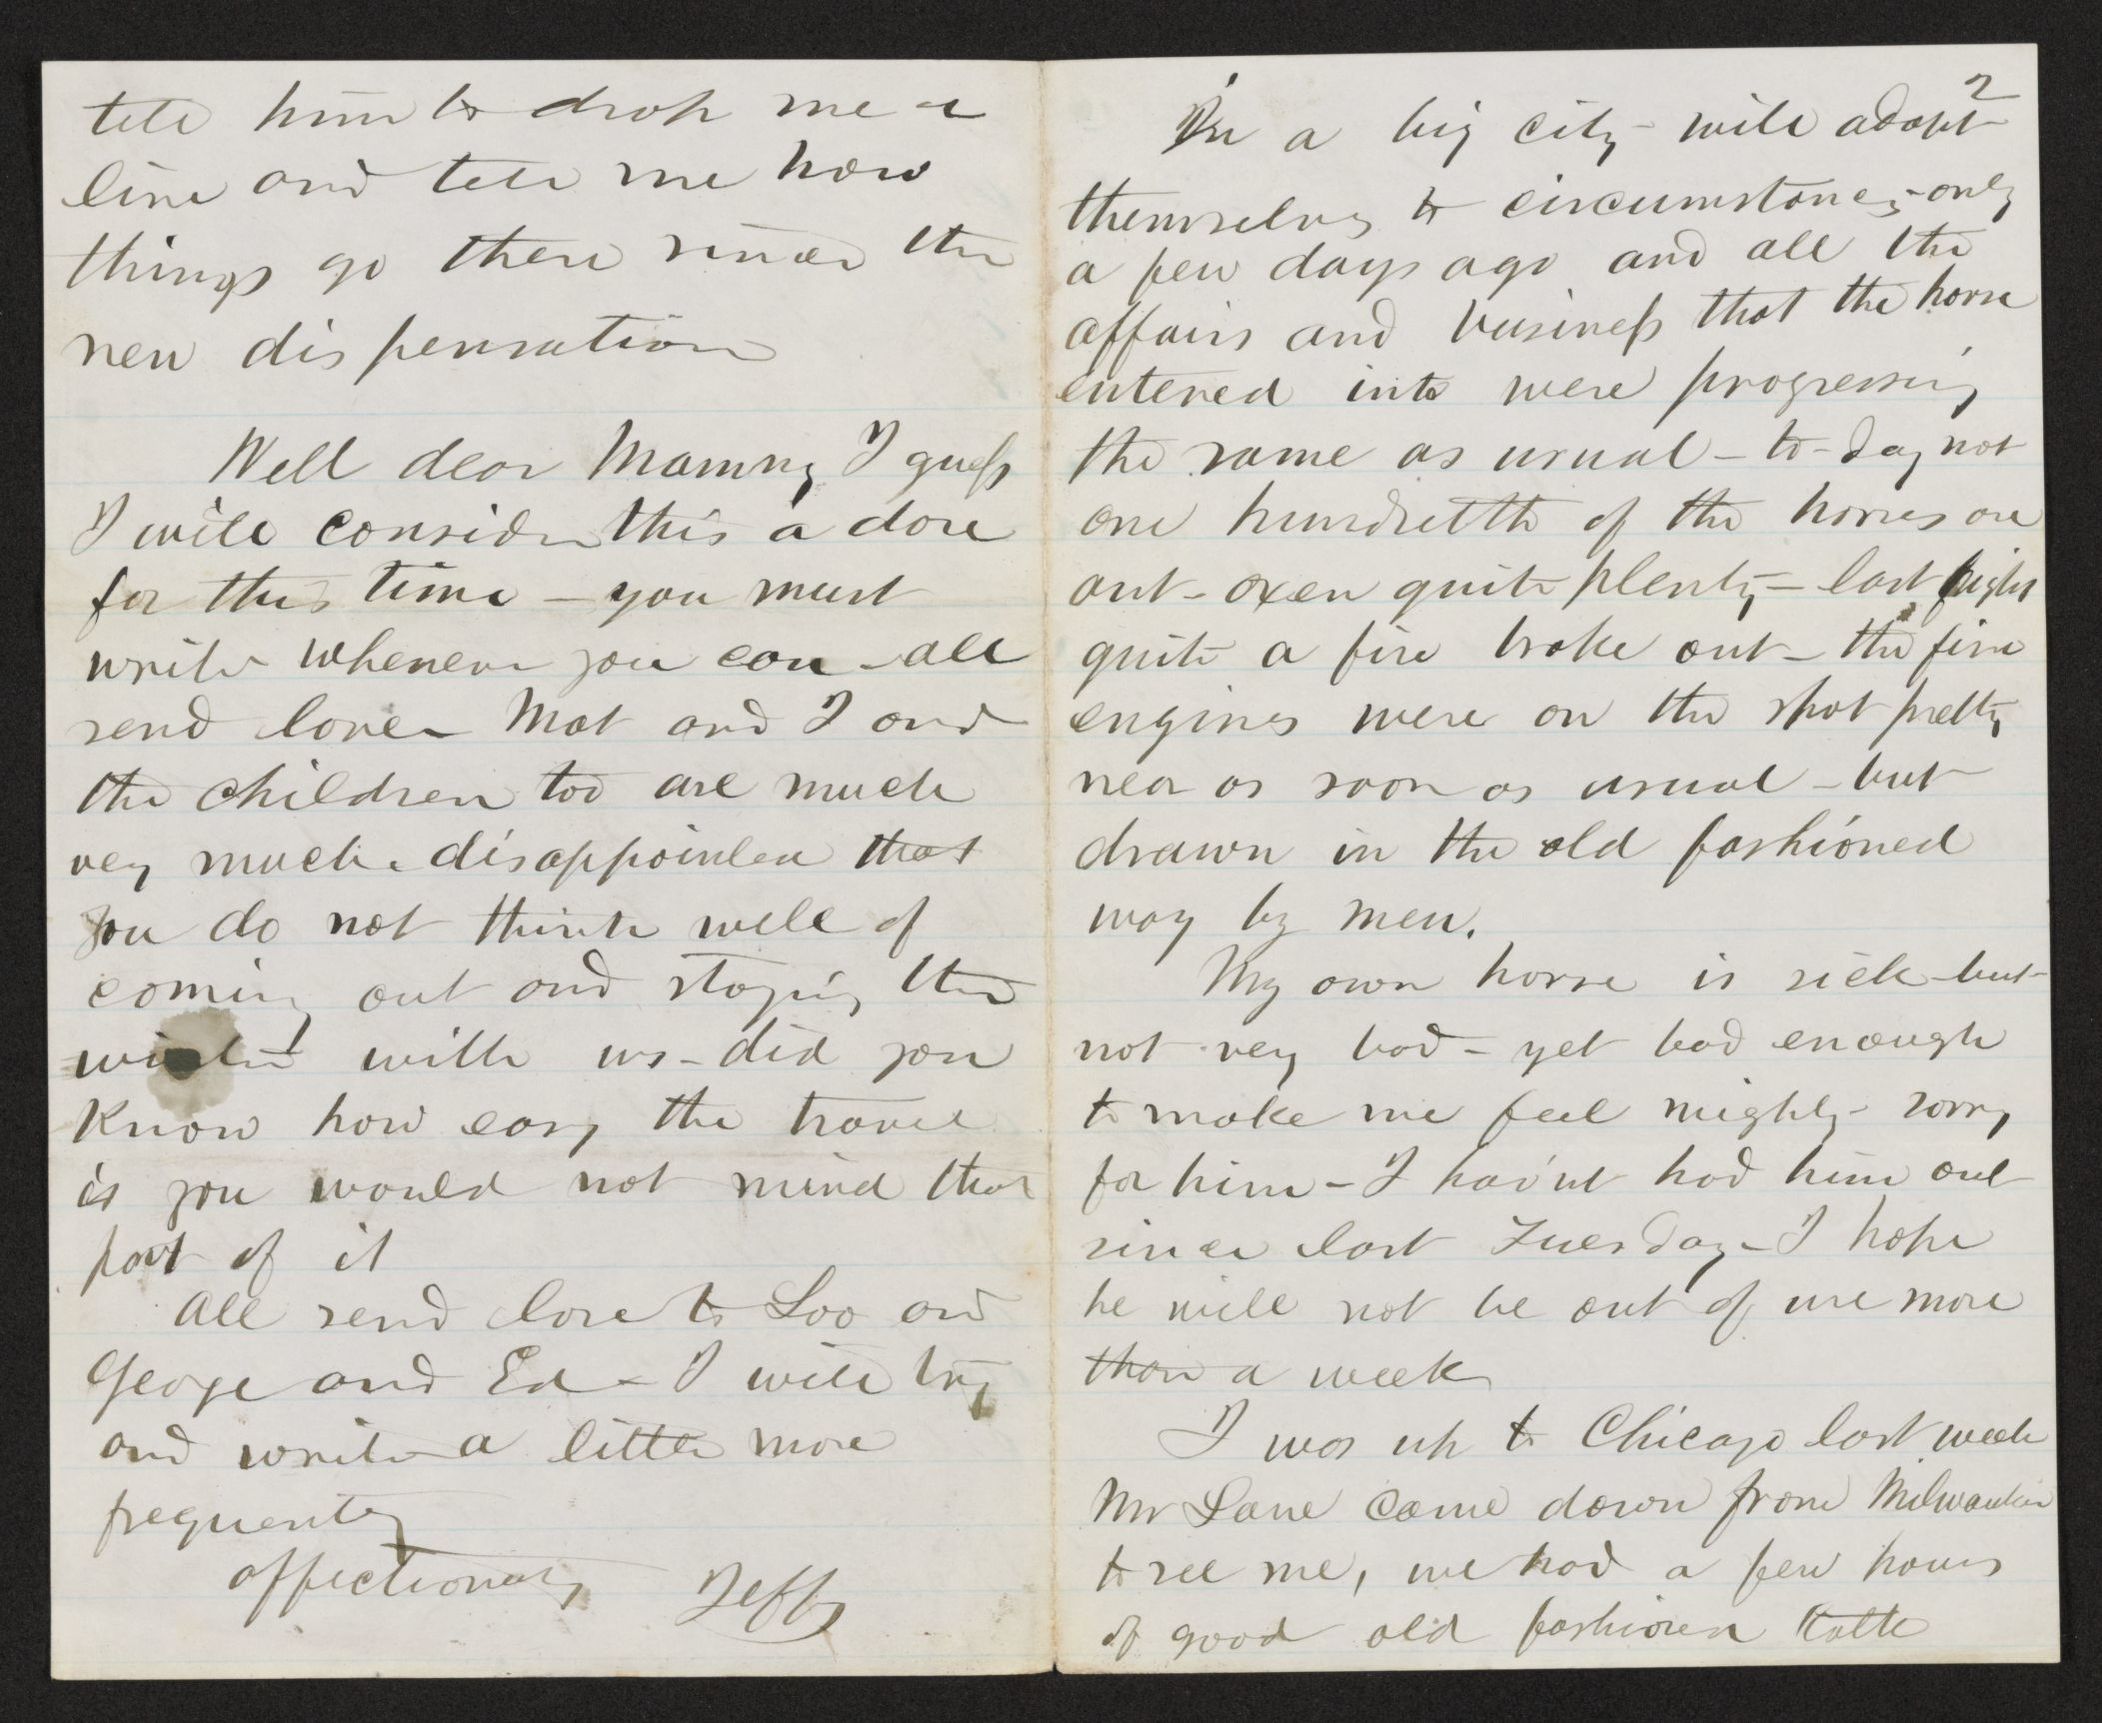 tell him to drop me a
line and tell me how
things go there since the
new dispensation
Well dear Mammy I guess
I will consider this a dose
for this time – you must
write whenever you can – all
send love – Mat and I and
the children too are much
very much disappointed that
you do not think well of
coming out and staying the
winter with us – did you
know how easy the travel
is you would not mind that
part of it
All send love to Loo and
George and Ed – I will try
and write a little more
frequently
affectionately Jeff
2
in a big city will adapt
themselves to circumstances – only
a few days ago and all the
affairs and business that the horse
entered into were progressing
the same as usual – to-day not
one hundredth of the horses are
out – oxen quite plenty – last night
quite a fire broke out – the fire
engines were on the spot pretty
near as soon as usual – but
drawn in the old fashioned
way by men.
My own horse is sick – but
not very bad – yet bad enough
to make me feel mighty sorry
for him – I hav'nt had him out
since last Tuesday – I hope
he will not be out of use more
than a week
I was up to Chicago last week
Mr Lane came down from Milwaukee
to see me, we had a few hours
of good old fashioned talk